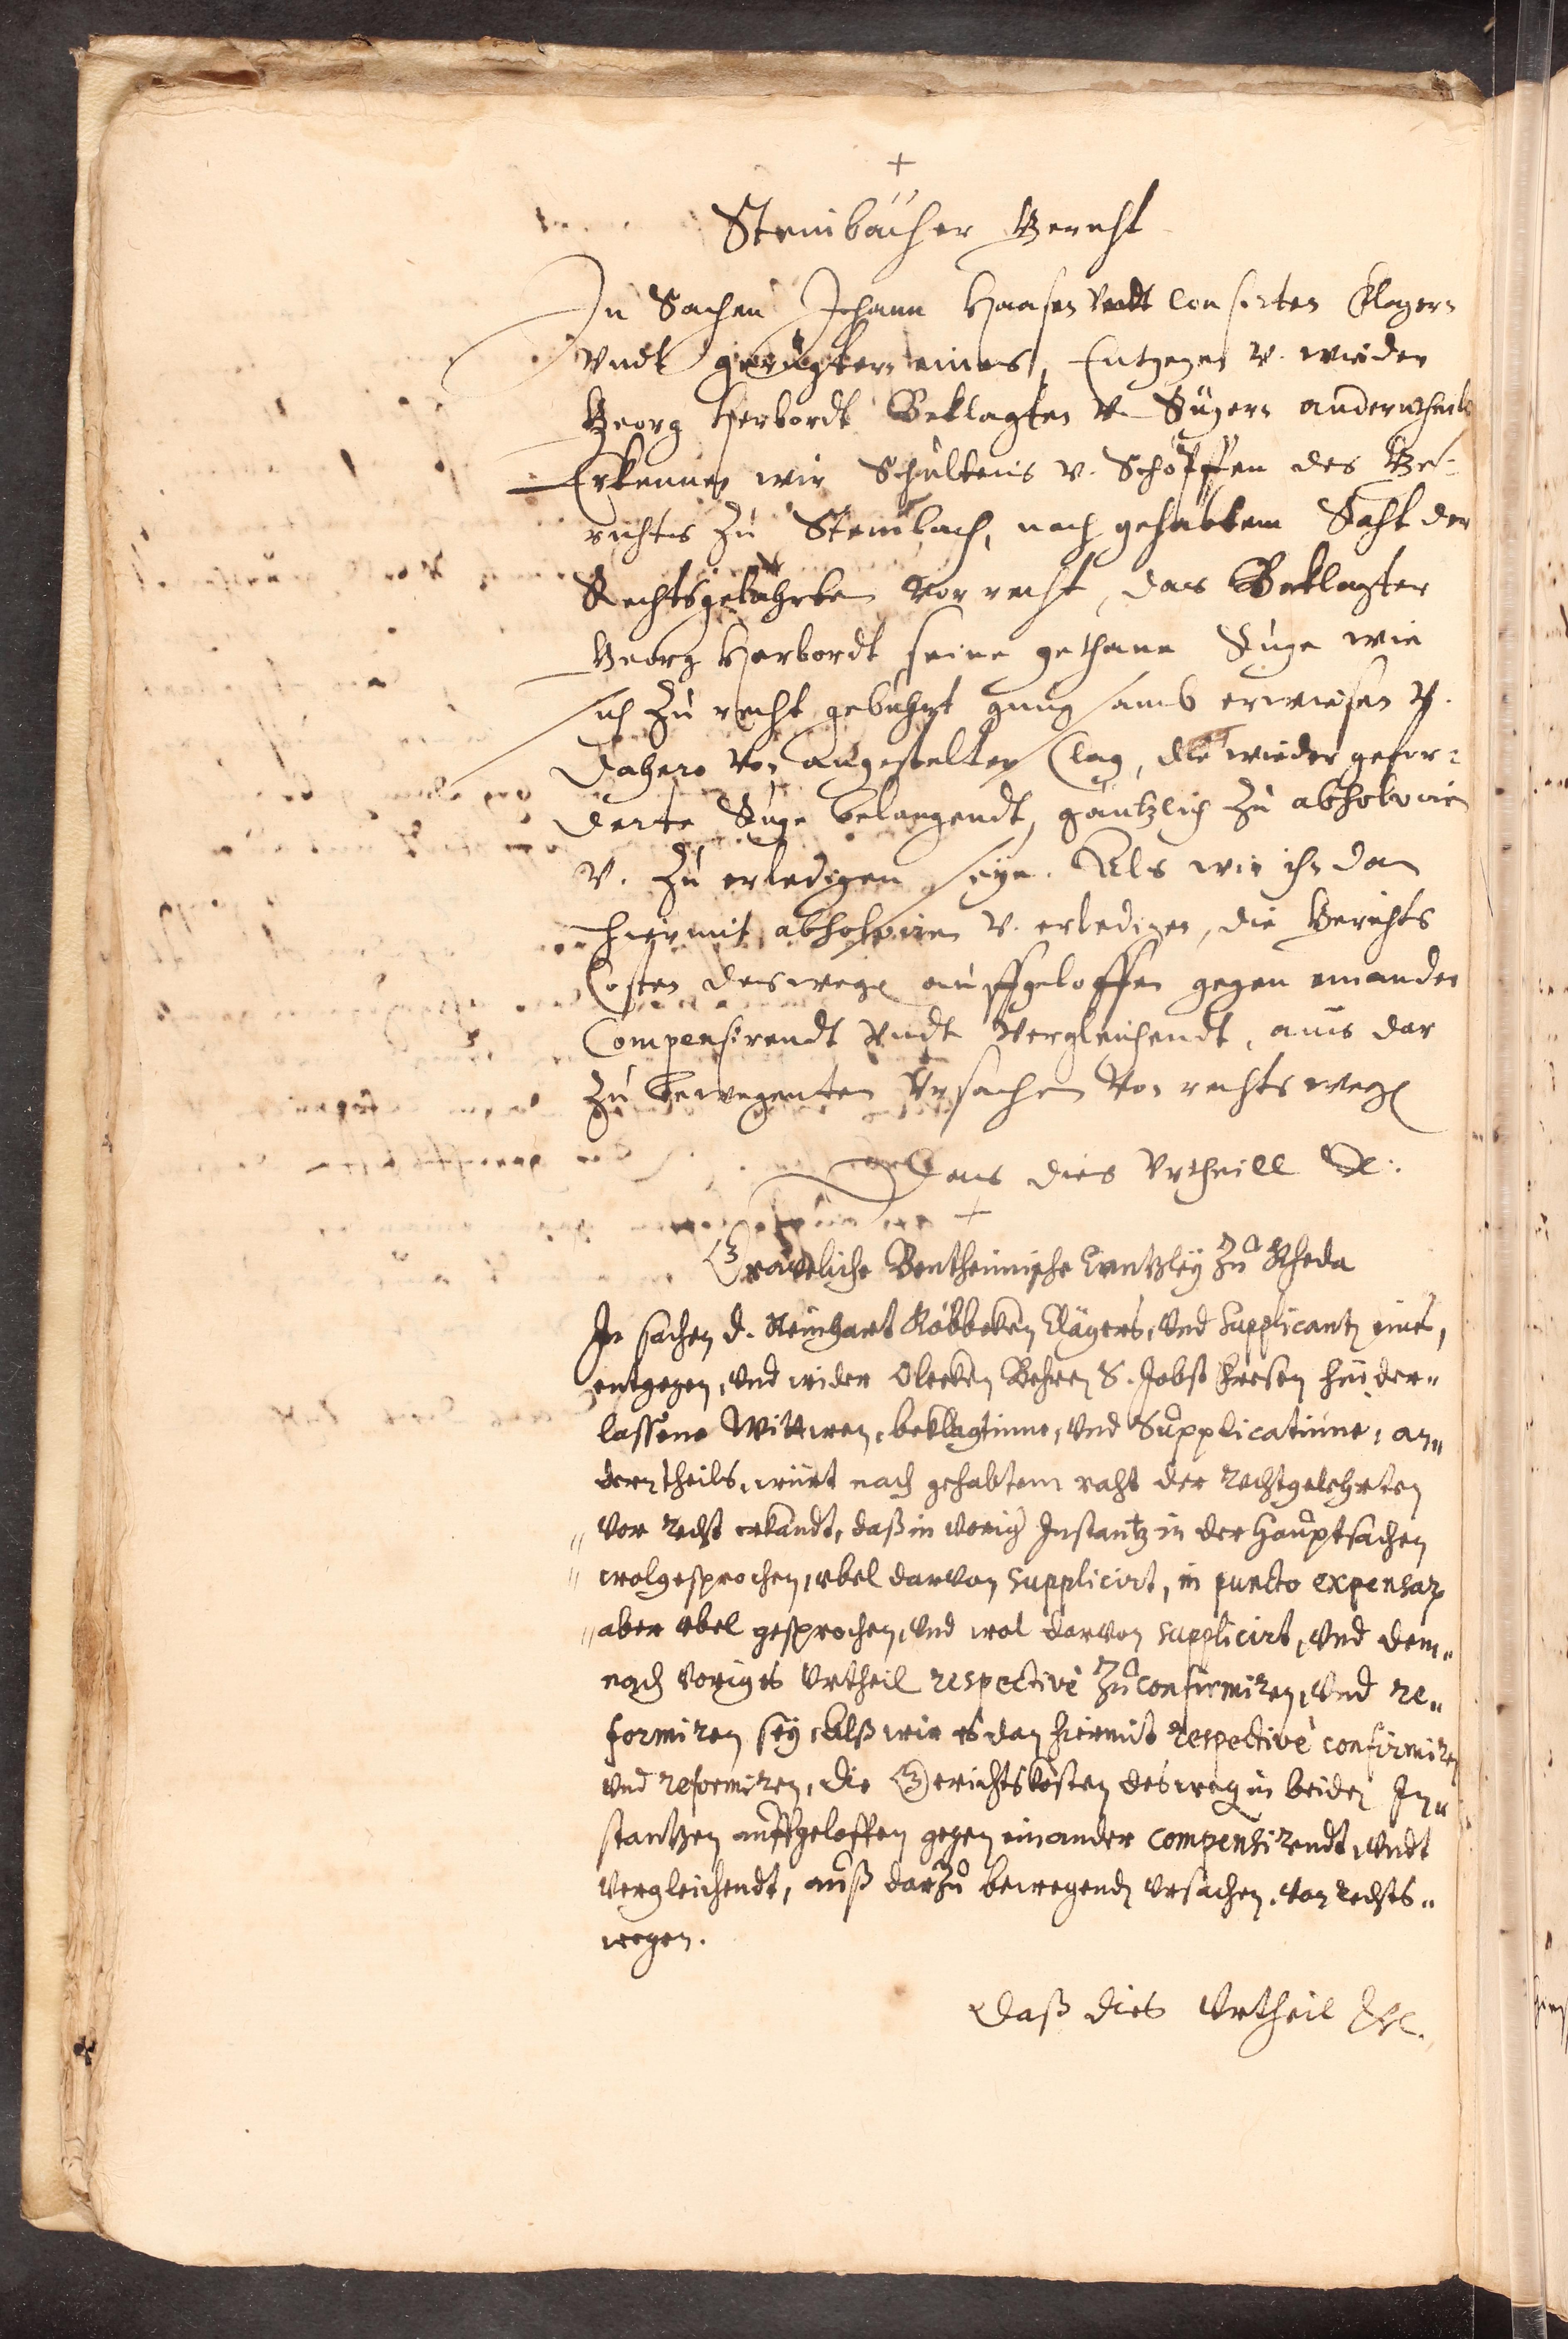 +
Steinbacher Gericht
In Sachen Johann Haasen vndt Consorten Clagern
vndt gerügtern eines, Entgegen v. wieder
Georg Herbordt Beklagten v. Rügern anderntheils
Erkennen wir Schulteis v. Schöpffen des Ge-
richts zu Steinbach, nach gehabtem Raht der
Rechtsgelährten vor recht, das Beklagter
Georg Herbordt seine gethane Rüge wie
sich zu recht gebührt gnugsamb erwiesen v.
dahero von angestelter Clag, die wieder gefor-
derte Rüge belangendt, gäntzlich zu absolviren
v. zu erledigen seye. Als wir ihn dan
hiermit absolviren v. erledigen, die Gerichts
Costen deswegen auffgeloffen gegen einander
Compensirendt vndt vergleichendt, aus dar
zu bewegenten Vrsachen von rechts wegen
Das dies Vrtheill &c.
+
Gräveliche Bentheimische Cantzley zu Rheda
In sachen d. Reinhart Röbbeken Clägers, vnd Supplicanten eins,
entgegen, vnd wider Olecken Behren S. Jobst Fresen hinder-
lassene Wittwen, beklagtinne, vnd Supplicatinne, an-
derntheils, wirt nach gehabtem raht der rechtgelehrten
vor recht erkandt, daß in voriger Instantz in der Hauptsachen
wolgesprochen, vbel darvon supplicirt, in puncto expensarum
aber vbel gesprochen, vnd wol darvon supplicirt, vnd dem-
nach voriges Vrtheil respectivè zu confirmiren, vnd re-
formiren sey, Alß wir es dan hiermit respectivè confirmiren
vnd reformiren, die Gerichtskosten deswegen in beiden In-
stantzen auffgeloffen gegen einander compensirendt, vndt
vergleichendt, auß darzu bewegenden vrsachen, von rechts-
wegen.
Daß dies Vrtheil &c.